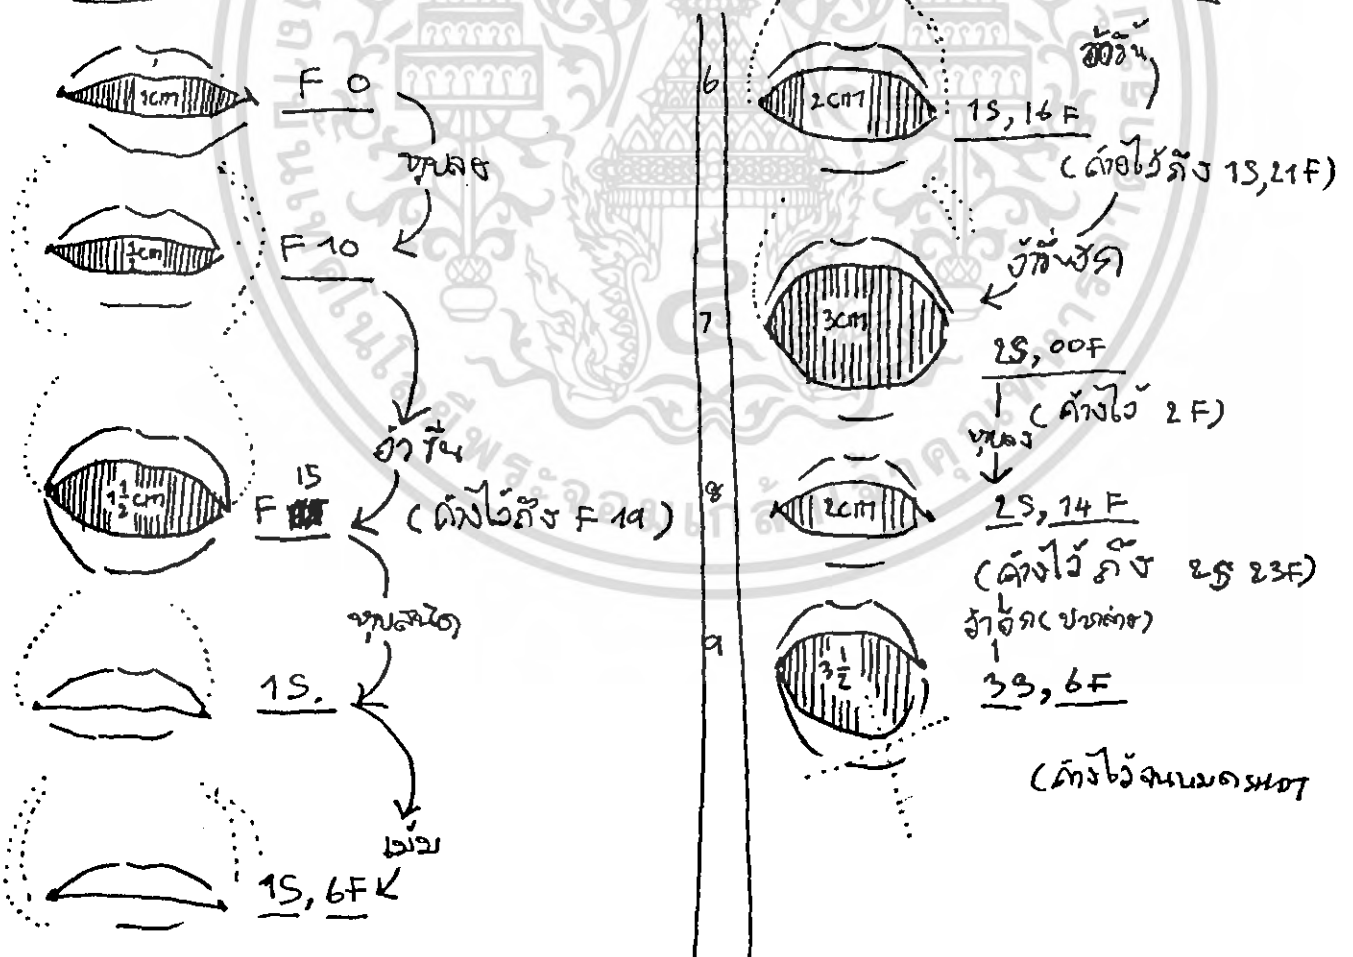 1cm
F 0
หุบลง
½cm
F 10
อ้าขึ้น
1½cm
F 15
(ค้างไว้ถึง F 19)
หุบสนิท
1S.
เม้ม
1S, 6F
6
2cm
อ้าขึ้น
1S, 16F
(ค้างไว้ถึง 1S, 21F)
7
3cm
อ้าขึ้นอีก
2S, 00F
(ค้างไว้ 2F)
หุบลง
8
2cm
2S, 14F
(ค้างไว้ถึง 2S 23F)
อ้าอีก
9
3½
3S, 6F
(ค้างไว้จน